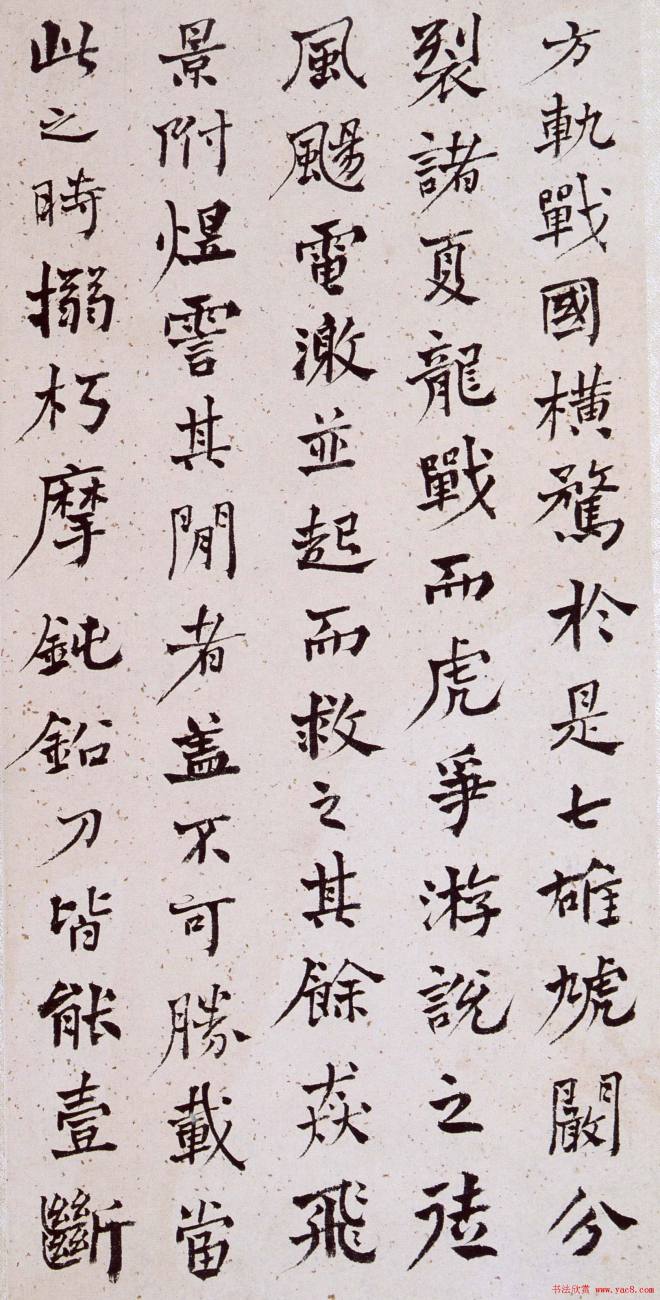 方軌戰國橫騖於是七雄虓闞分
裂諸夏龍戰而虎爭游說之徒
風颺電激並起而救之其餘猋飛
景附煜霅其閒者蓋不可勝載當
此之時搦朽摩鈍鉛刀皆能壹斷
书法欣赏 www.yac8.com